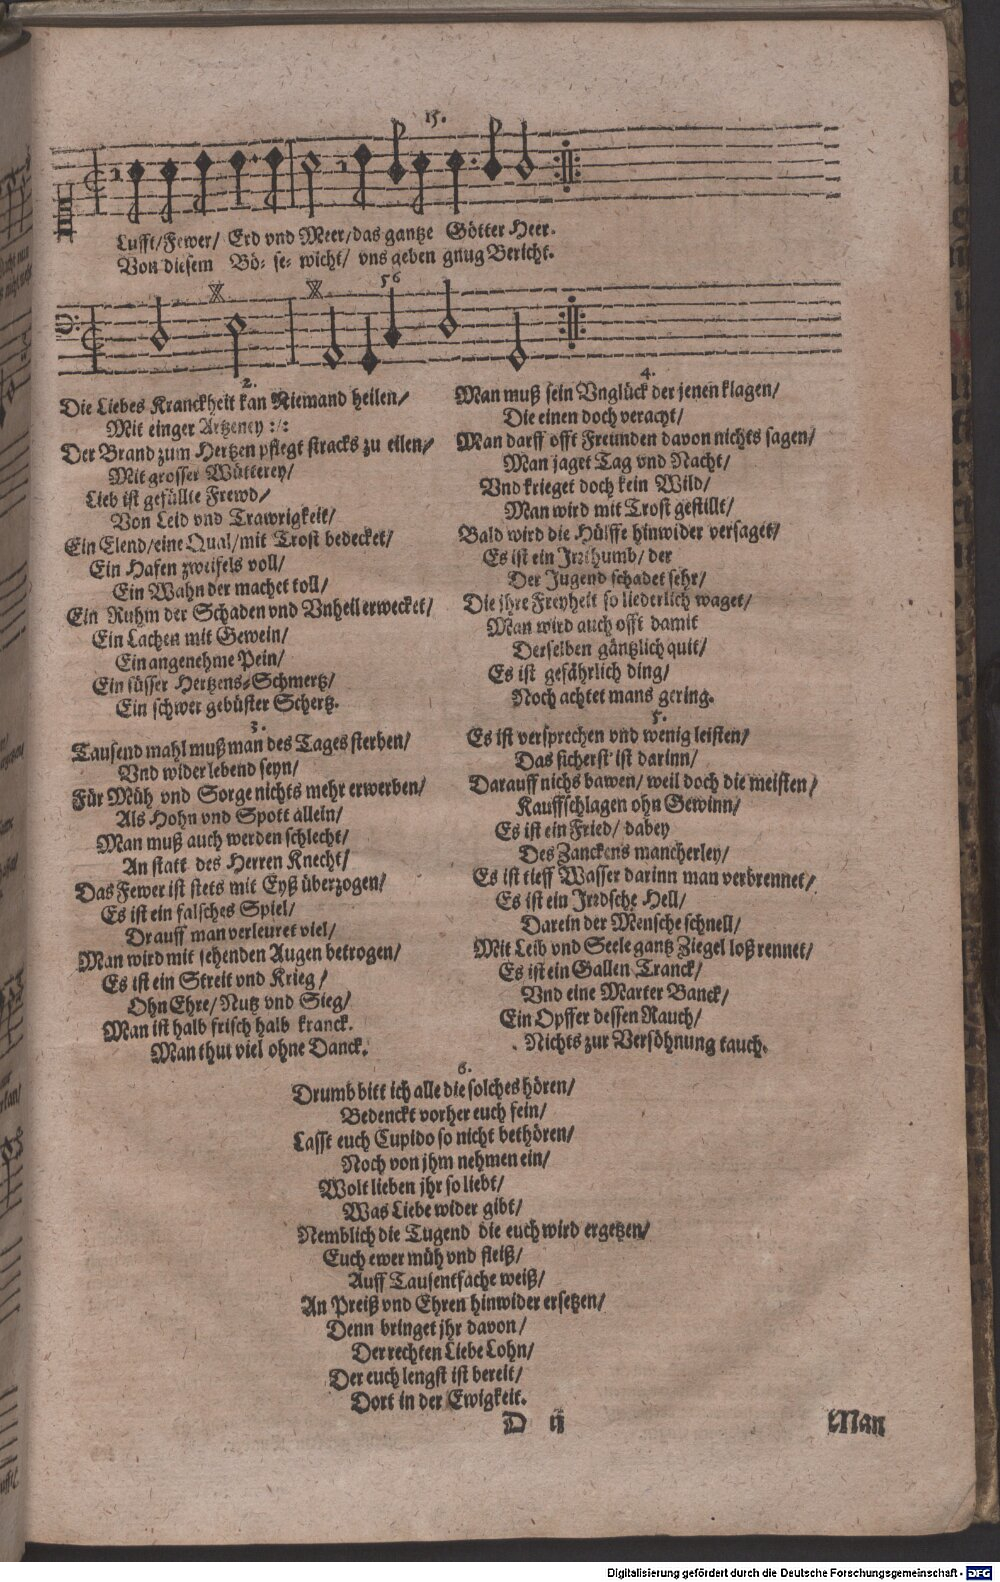 15.
Lufft/Fewer/ Erd vnd Meer/das gantze Götter Heer.
Von diesem Bö- se- wicht/ vns geben gnug Bericht.
56
2.
Die Liebes Kranckheit kan Niemand heilen/
Mit einger Artzeney :/:
Der Brand zum Hertzen pflegt stracks zu eilen/
Mit grosser Wütterey/
Lieb ist gefüllte Frewd/
Von Leid vnd Trawrigkeit/
Ein Elend/eine Qual/mit Trost bedecket/
Ein Hafen zweifels voll/
Ein Wahn der machet toll/
Ein Ruhm der Schaden vnd Vnheil erwecket/
Ein Lachen mit Gewein/
Ein angenehme Pein/
Ein süsser Hertzens-Schmertz/
Ein schwer gebüster Schertz.
3.
Tausend mahl muß man des Tages sterben/
Vnd wider lebend seyn/
Für Müh vnd Sorge nichts mehr erwerben/
Als Hohn vnd Spott allein/
Man muß auch werden schlecht/
An statt des Herren Knecht/
Das Fewer ist stets mit Eyß überzogen/
Es ist ein falsches Spiel/
Drauff man verleuret viel/
Man wird mit sehenden Augen betrogen/
Es ist ein Streit vnd Krieg/
Ohn Ehre/ Nutz vnd Sieg/
Man ist halb frisch halb kranck.
Man thut viel ohne Danck.
4.
Man muß sein Vnglück der jenen klagen/
Die einen doch veracht/
Man darff offt Freunden davon nichts sagen/
Man jaget Tag vnd Nacht/
Vnd krieget doch kein Wild/
Man wird mit Trost gestillt/
Bald wird die Hülffe hinwider versaget/
Es ist ein Irrthumb/ der
Der Jugend schadet sehr/
Die jhre Freyheit so liederlich waget/
Man wird auch offt damit
Derselben gäntzlich quit/
Es ist gefährlich ding/
Noch achtet mans gering.
5.
Es ist versprechen vnd wenig leisten/
Das sicherst ist darinn/
Darauff nichs bawen/ weil doch die meisten/
Kauffschlagen ohn Gewinn/
Es ist ein Fried/ dabey
Des Zanckens mancherley/
Es ist tieff Wasser darinn man verbrennet/
Es ist ein Irrdsche Hell/
Darein der Mensche schnell/
Mit Leib vnd Seele gantz Ziegel loß rennet/
Es ist ein Gallen Tranck/
Vnd eine Marter Banck/
Ein Opffer dessen Rauch/
Nichts zur Versöhnung tauch.
6.
Drumb bitt ich alle die solches hören/
Bedenckt vorher euch fein/
Lasst euch Cupido so nicht bethören/
Noch von jhm nehmen ein/
Wolt lieben jhr so liebt/
Was Liebe wider gibt/
Nemblich die Tugend die euch wird ergetzen/
Euch ewer müh vnd fleiß/
Auff Tausentfache weiß/
An Preiß vnd Ehren hinwider ersetzen/
Denn bringet jhr davon/
Der rechten Liebe Lohn/
Der euch lengst ist bereit/
Dort in der Ewigkeit.
D ij
Man
Digitalisierung gefördert durch die Deutsche Forschungsgemeinschaft - DFG